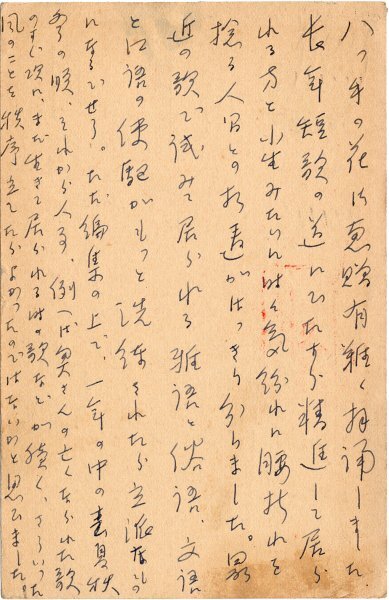 八つ手の花は恵贈有難く拝誦しました
長年短歌の道にひたすら精進して居ら
れる方と小生みたいに時々気紛れに腰折れを
捻る人間との相違がはっきり分りました。最
近の歌で試みて居られる雅語と俗語、文語
と口語の使駆がもっと洗練されたら立派なもの
になるでせう。ただ編集の上で、一年の中の春夏秋
冬の順、それから人事、例へば奥さんの亡くなられた歌
のすぐ次に、まだ生きて居られる時の歌などが続く、さういった
風のことを秩序立てたらよかったのではないかと思ひました。